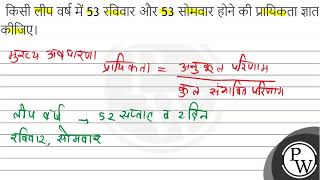 किसी लीप वर्ष में 53 रविवार और 53 सोमवार होने की प्रायिकता ज्ञात
कीजिए।
मुख्य अवधारणा
प्रायिकता = अनुकूल परिणाम
कुल संभावित परिणाम
लीप वर्ष → 52 सप्ताह व 2 दिन
रविवार, सोमवार
PW